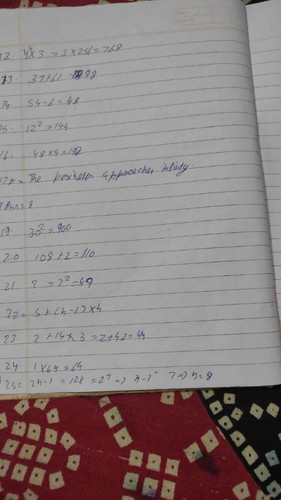 12. 4⁴×3 = 3×256 = 768
13. 37+61 = 98
14 54-6=48
15. 12² = 144
16. 48×4=192
The business approaches infinity.
Ans = 8
19 30² = 900
20 108+2=110
21 ? = 7² = 49
22= 5+(n-1)×4
23 2+14×3=2+42=44
24 1×64=64
25= 2n-1 = 128 = 2⁷ => n-1= 7 => n=8